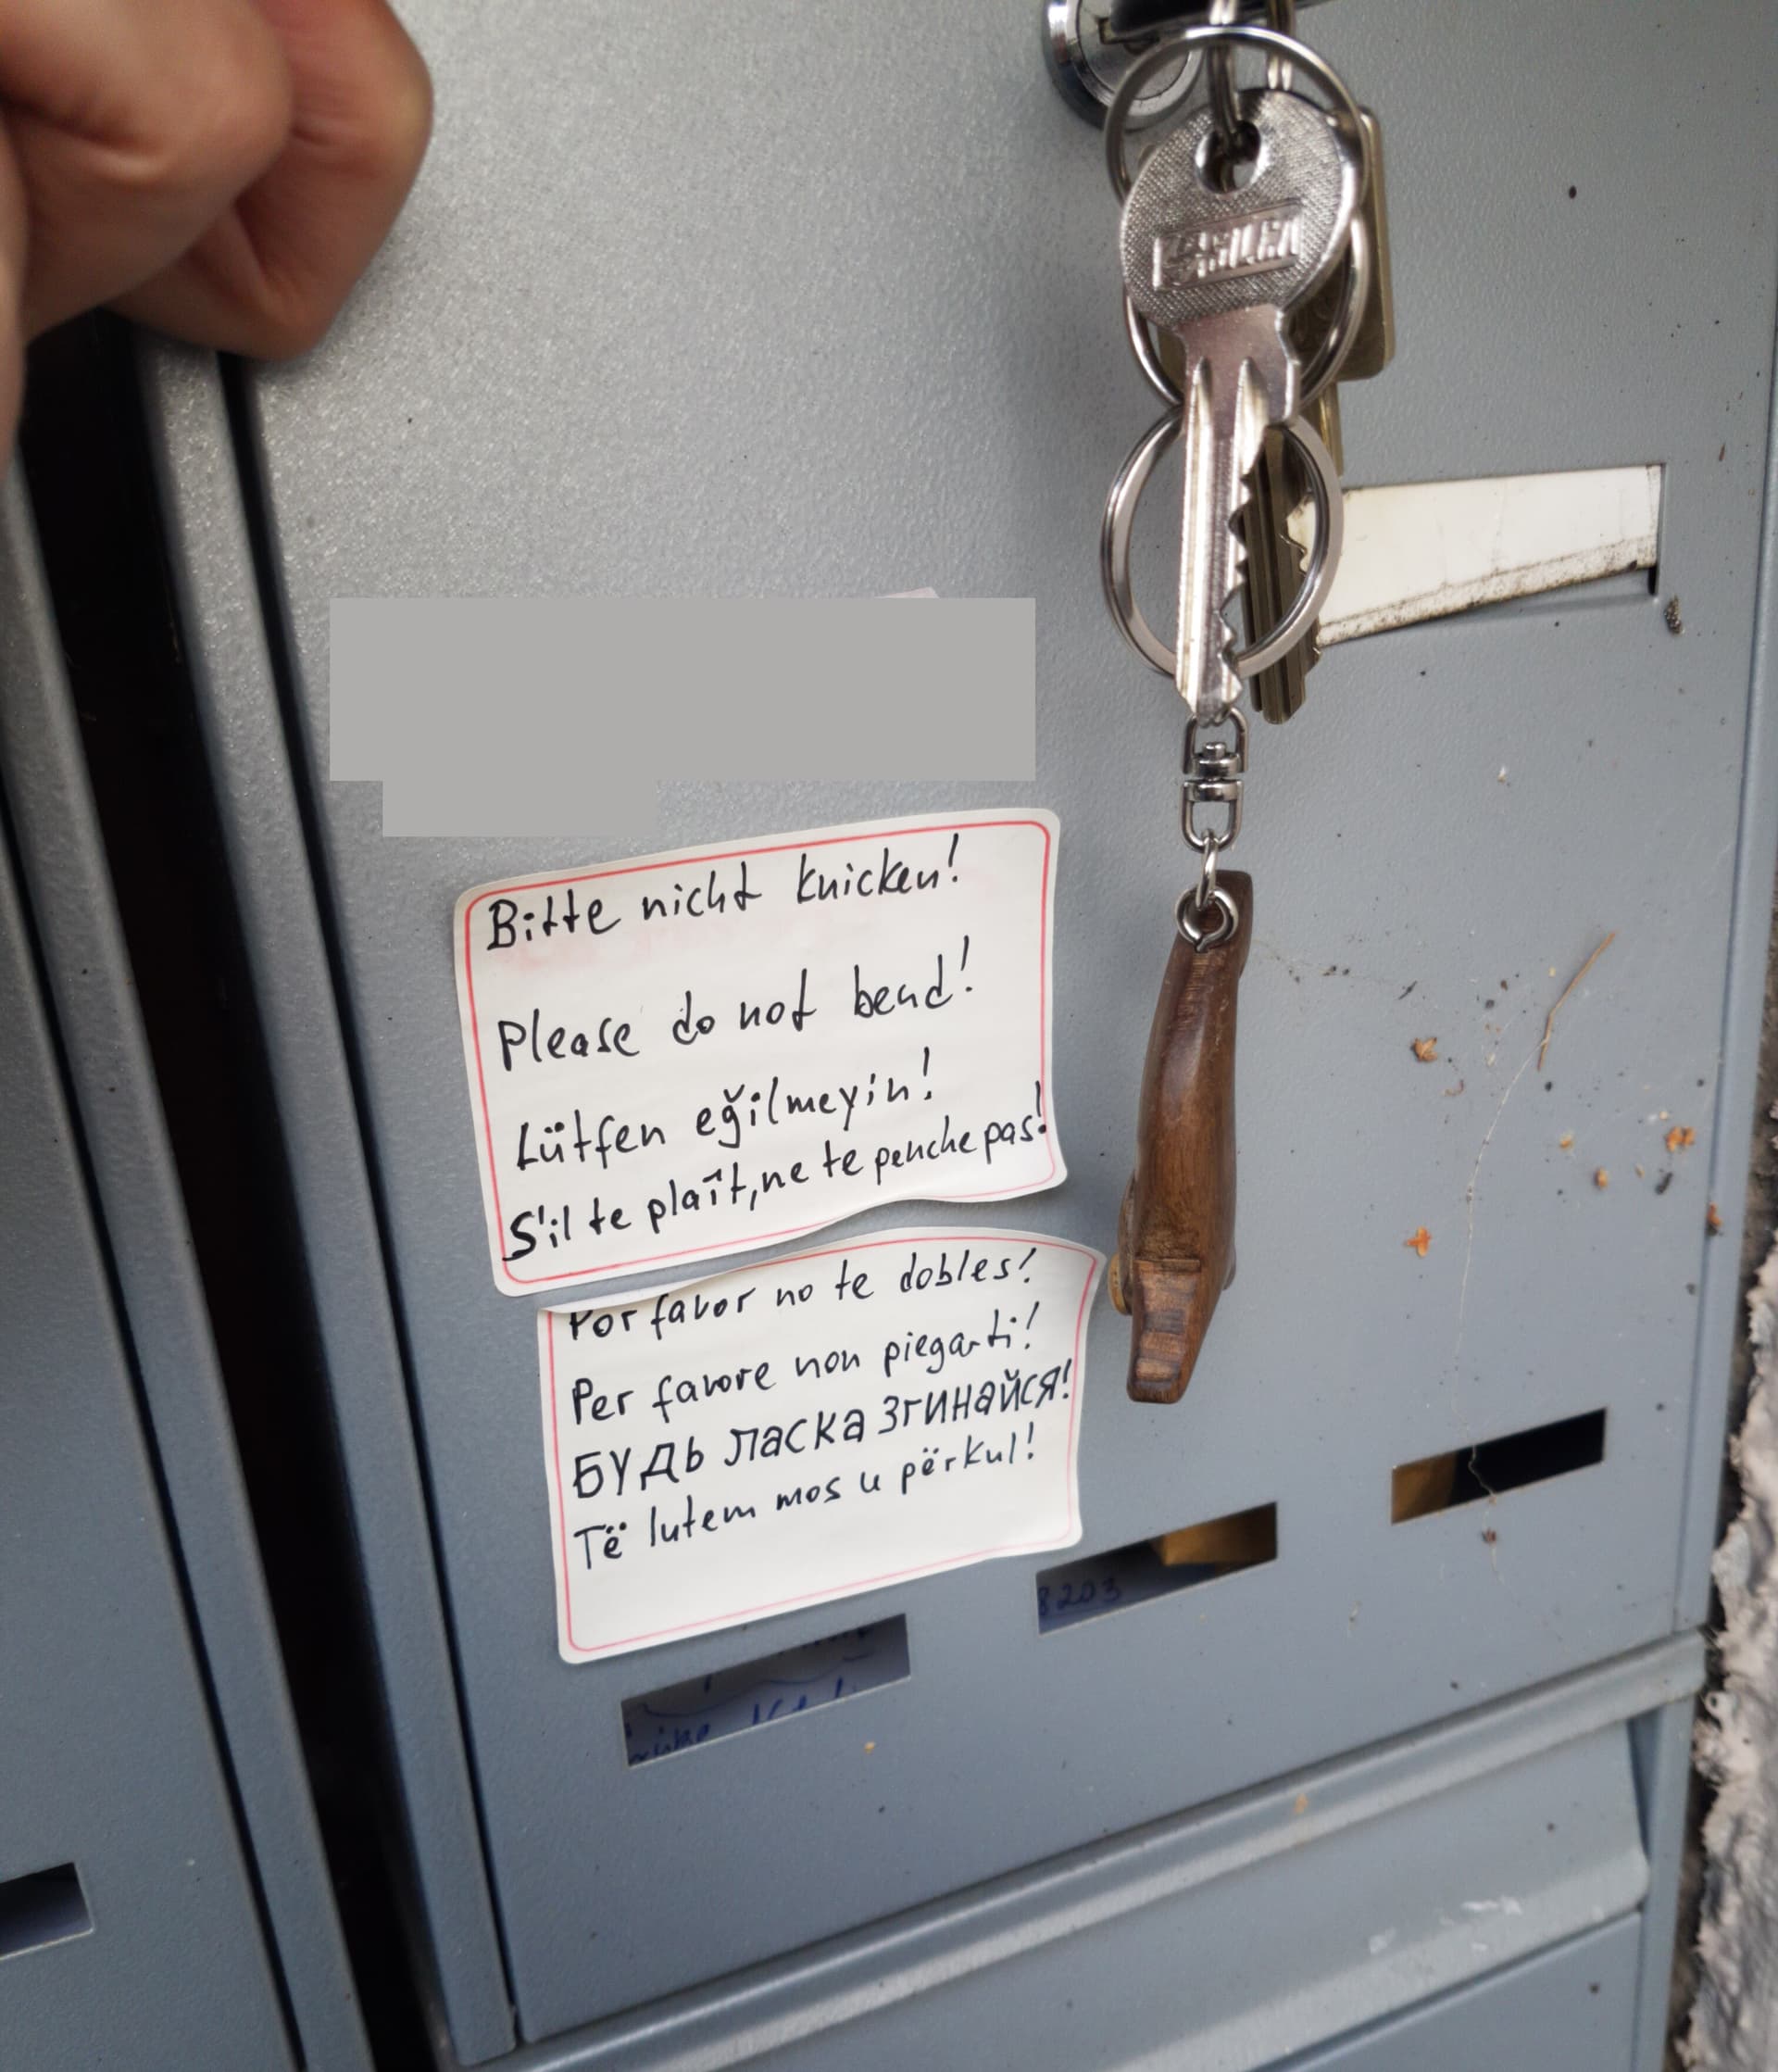 Bitte nicht knicken!
Please do not bend!
Lütfen eğilmeyin!
S'il te plaît, ne te penche pas!
Por favor no te dobles!
Per favore non piegarti!
БУДЬ ЛАСКА ЗГИНАЙСЯ!
Të lutem mos u përkul!
SILCA
8203